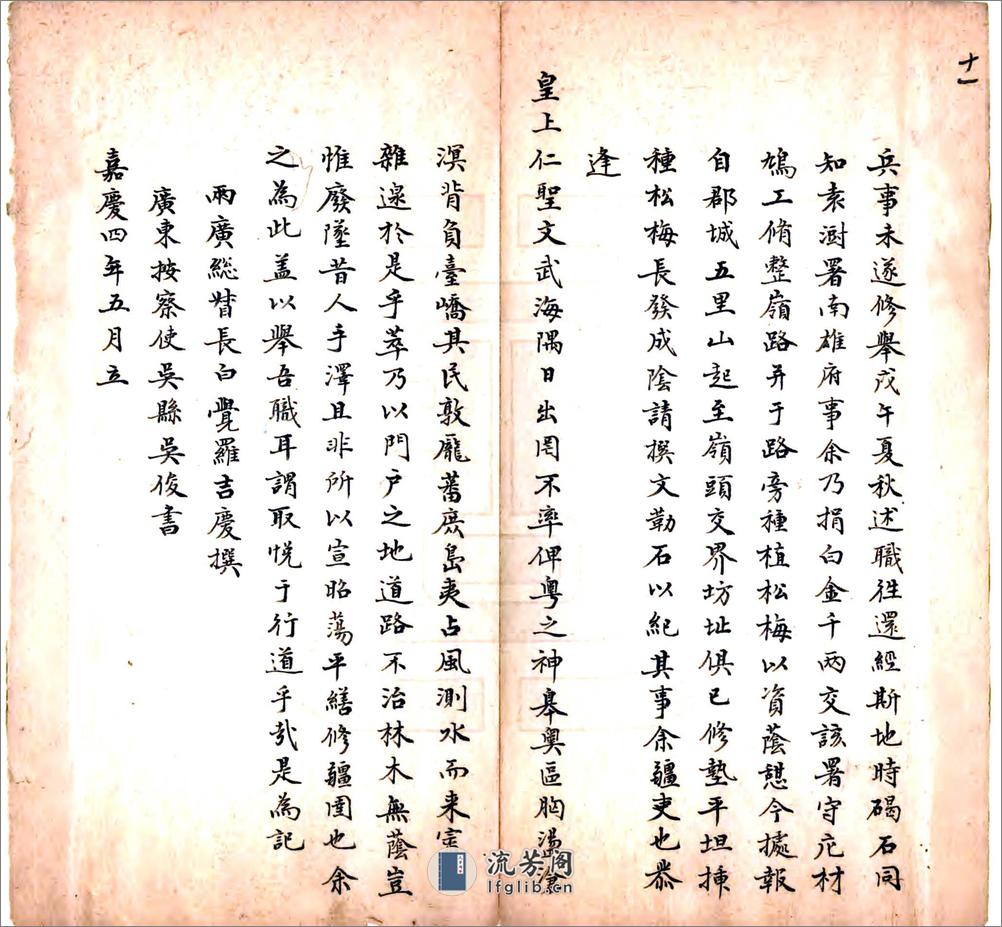 十一
兵事未遂修舉戊午夏秋述職徃還經斯地時碣石同
知袁澍署南雄府事余乃捐白金千兩交該署守庀材
鳩工脩整嶺路并于路旁種植松梅以資蔭憇今據報
自郡城五里山起至嶺頭交界坊址俱已修墊平坦揷
種松梅長發成陰請撰文勒石以紀其事余疆吏也恭
逢
皇上仁聖文武海隅日出罔不率俾粵之神皋奧區胸盪
溟背負臺嶠其民敦龐蕃庶島夷占風測水而来
雜遝於是乎萃乃以門户之地道路不治林木無蔭豈
惟廢墜昔人手澤且非所以宣昭蕩平繕修疆圉也余
之為此盖以舉吾職耳謂取悅于行道乎㢤是為記
兩廣総督長白覺羅吉慶撰
廣東按察使吳縣吳俊書
嘉慶四年五月立
流芳阁
lfglib.cn